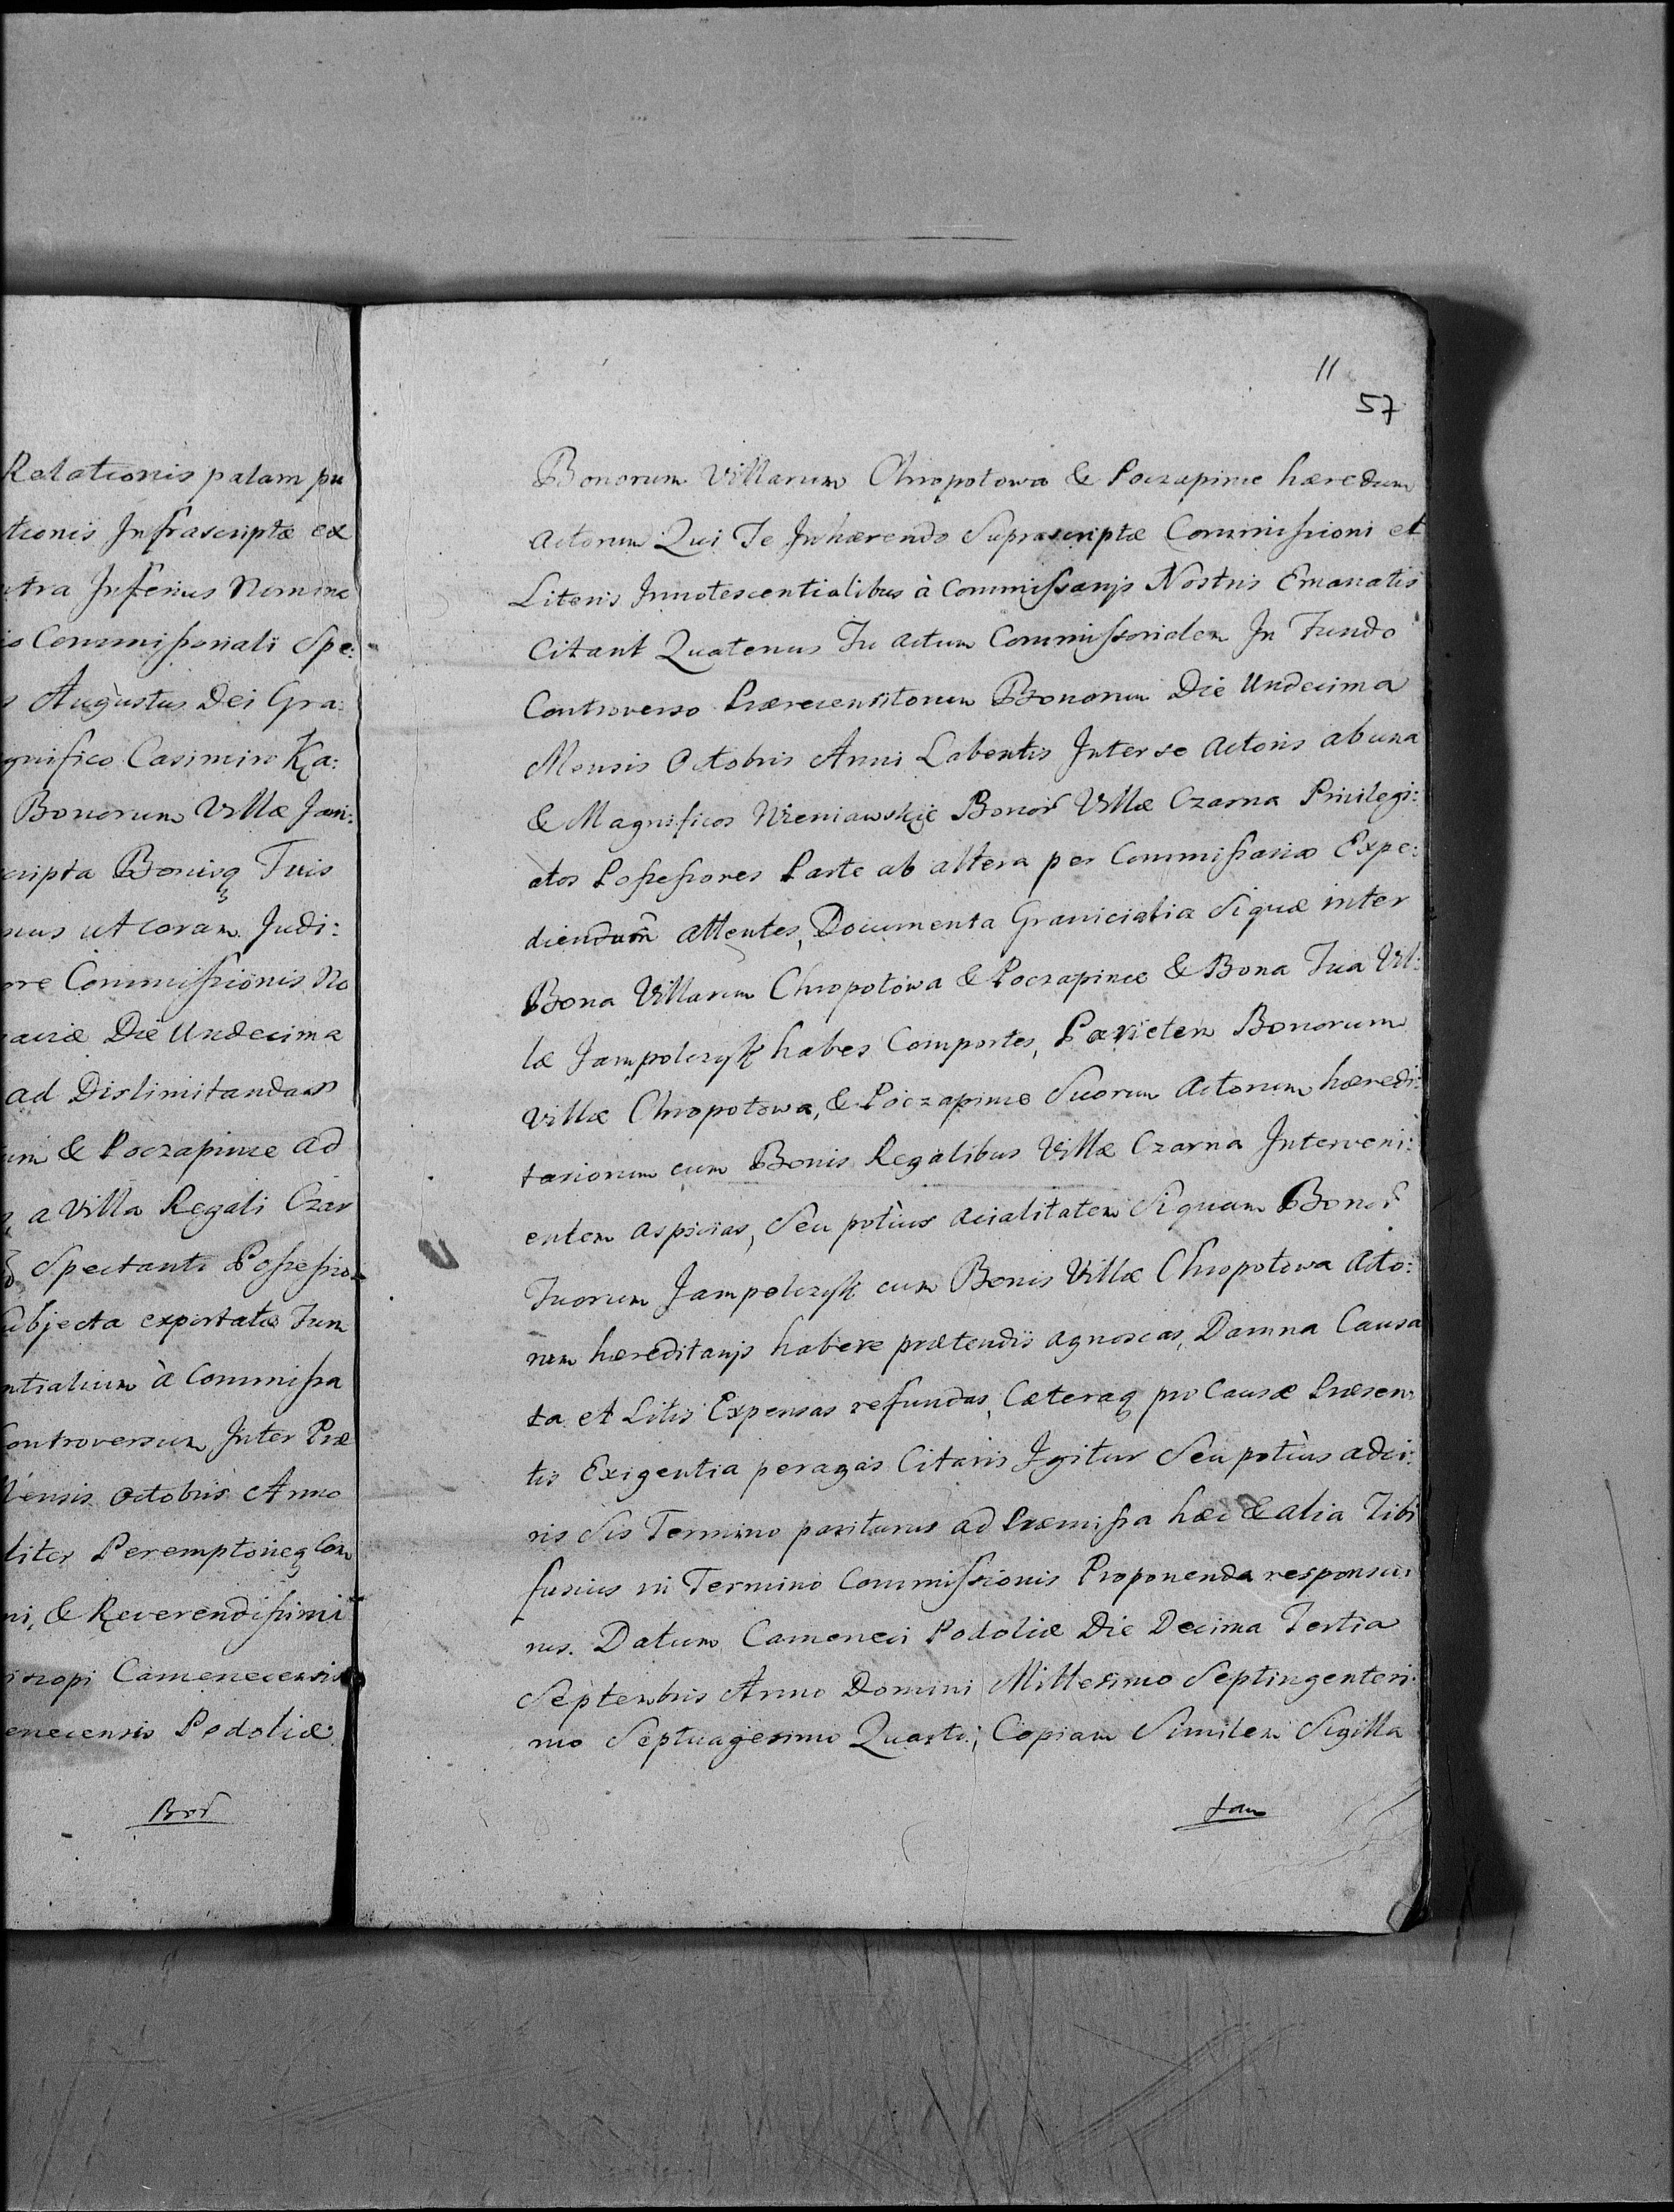 Relationis palam pu
tionis Infrascriptæ ex
ntra Inferius Nomina
io Commissoriali Spe:
s Augustus Dei Gra:
gnifico Casimiro Ka:
Bonorum Villæ Jam:
cripta Bonisq Tuis
nus ut coram Judi:
ore Commissionis No
aciæ Die Undecima
ad Dislimitandam
um & Poczapince ad
a Villa Regali Czar
Spectanti Possessio
ubjecta expertatæ Tum
ntialium à Commissa
Controversum Inter Præ
Mensis Octobris Anno
liter Peremptorieq Com
ni, & Reverendissimi
iscopi Camenecensis
enecensis Podoliæ
Bor
11
57
Bonorum Villarum Chropotowa & Poczapince hæredum
Actorum Qui Te Inhærendo Suprascriptæ Commissioni et
Literis Innotescentialibus à Commissarijs Nostris Emanatis
Citant Quatenus Tu Actum Commissorialem In Fundo
Controverso Prærecensitorum Bonorum Die Undecima
Mensis Octobris Anni Labentis Inter se Actoris ab una
& Magnificos Wieniawskie Bonor Villæ Czarna Privilegi:
atos Possessores Parte ab altera per Commissarios Expe:
diendum attentes, Documenta Granicialia Siquæ inter
Bona Villarum Chropotowa & Poczapince & Bona Tua Vil:
læ Jampolczyk habes Comportes, Parietem Bonorum
Villæ Chropotowa, & Poczapince Suorum Actorum hæredi:
tariorum cum Bonis Regalibus Villæ Czarna Interveni:
entem aspicias, Seu potius Acialitatem Siquam Bonor
Tuorum Jampolczyk cum Bonis Villæ Chropotowa Acto:
rum hæreditarijs habere prætendis agnoscas, Damna Causa
ta et Litis Expensas refundas, Cæteraq pro Causæ Præsen
tis Exigentia peragas Citaris Igitur Seu potius adci:
ris Sis Termino pariturus ad Præmissa hæc & alia Tibi
fusius in Termino Commissionis Proponenda responsu:
rus. Datum Cameneci Podoliæ Die Decima Tertia
Septembris Anno Domini Millesimo Septingentesi:
mo Septuagesimo Quarto; Copiam Similem Sigilla
tam